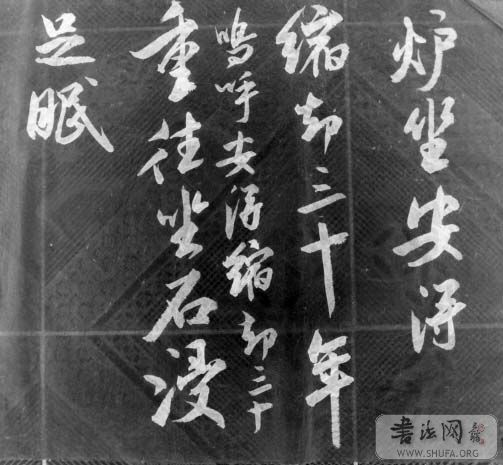 炉坐安得
缩却三十年
呜呼安得缩却三十
重往坐石浸
足眠
书法网
WWW.SHUFA.ORG